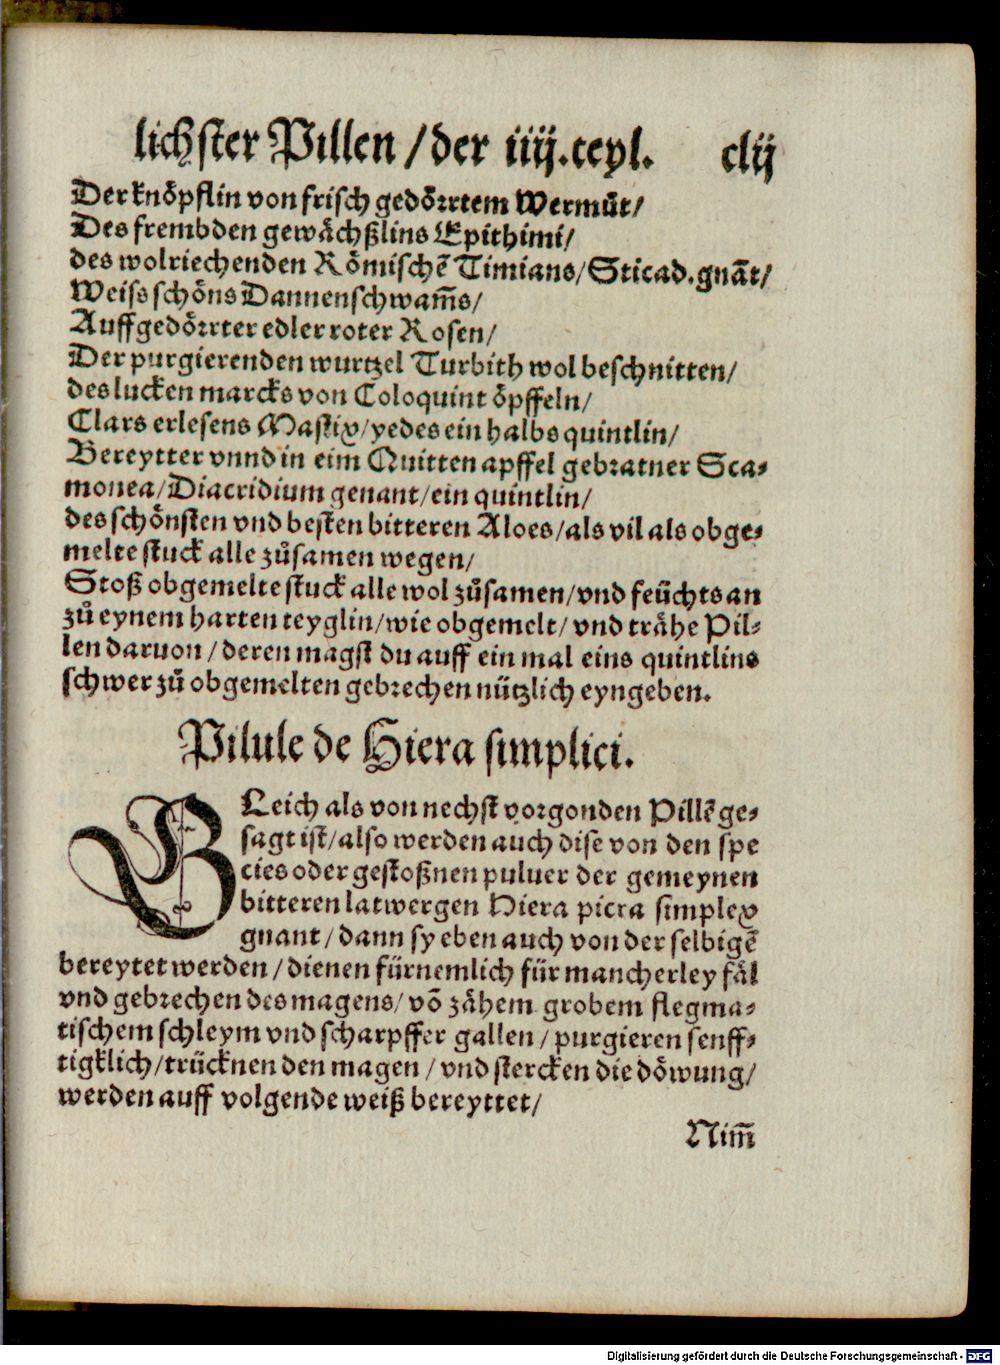 lichster Pillen / der iiij. teyl. clij
Der knöpflin von frisch gedörrtem Wermůt/
Des frembden gewächßlins Epithimi/
des wolriechenden Römischē Timians/ Sticad. gnāt/
Weiss schöns Dannenschwam̄s/
Auffgedörrter edler roter Rosen/
Der purgierenden wurtzel Turbith wol beschnitten/
des lucken marcks von Coloquint öpffeln/
Clars erlesens Mastix/ yedes ein halbs quintlin/
Bereytter vnnd in eim Quitten apffel gebratner Sca⸗
monea/ Diacridium genant/ ein quintlin/
des schönsten vnd besten bitteren Aloes/ als vil als obge⸗
melte stuck alle zůsamen wegen/
Stoß obgemelte stuck alle wol zůsamen/ vnd feüchts an
zů eynem harten teyglin/ wie obgemelt/ vnd trähe Pil⸗
len daruon / deren magst du auff ein mal eins quintlins
schwer zů obgemelten gebrechen nützlich eyngeben.
Pilule de Hiera simplici.
GLeich als von nechst vorgonden Pillē ge⸗
sagt ist/ also werden auch dise von den spe
cies oder gestoßnen puluer der gemeynen
bitteren latwergen Hiera picra simplex
gnant / dann sy eben auch von der selbigē
bereytet werden / dienen fürnemlich für mancherley fäl
vnd gebrechen des magens/ vō zähem grobem flegma⸗
tischem schleym vnd scharpffer gallen / purgieren senff⸗
tigklich/ trücknen den magen / vnd stercken die döwung/
werden auff volgende weiß bereyttet/
Nim̄
Digitalisierung gefördert durch die Deutsche Forschungsgemeinschaft - DFG